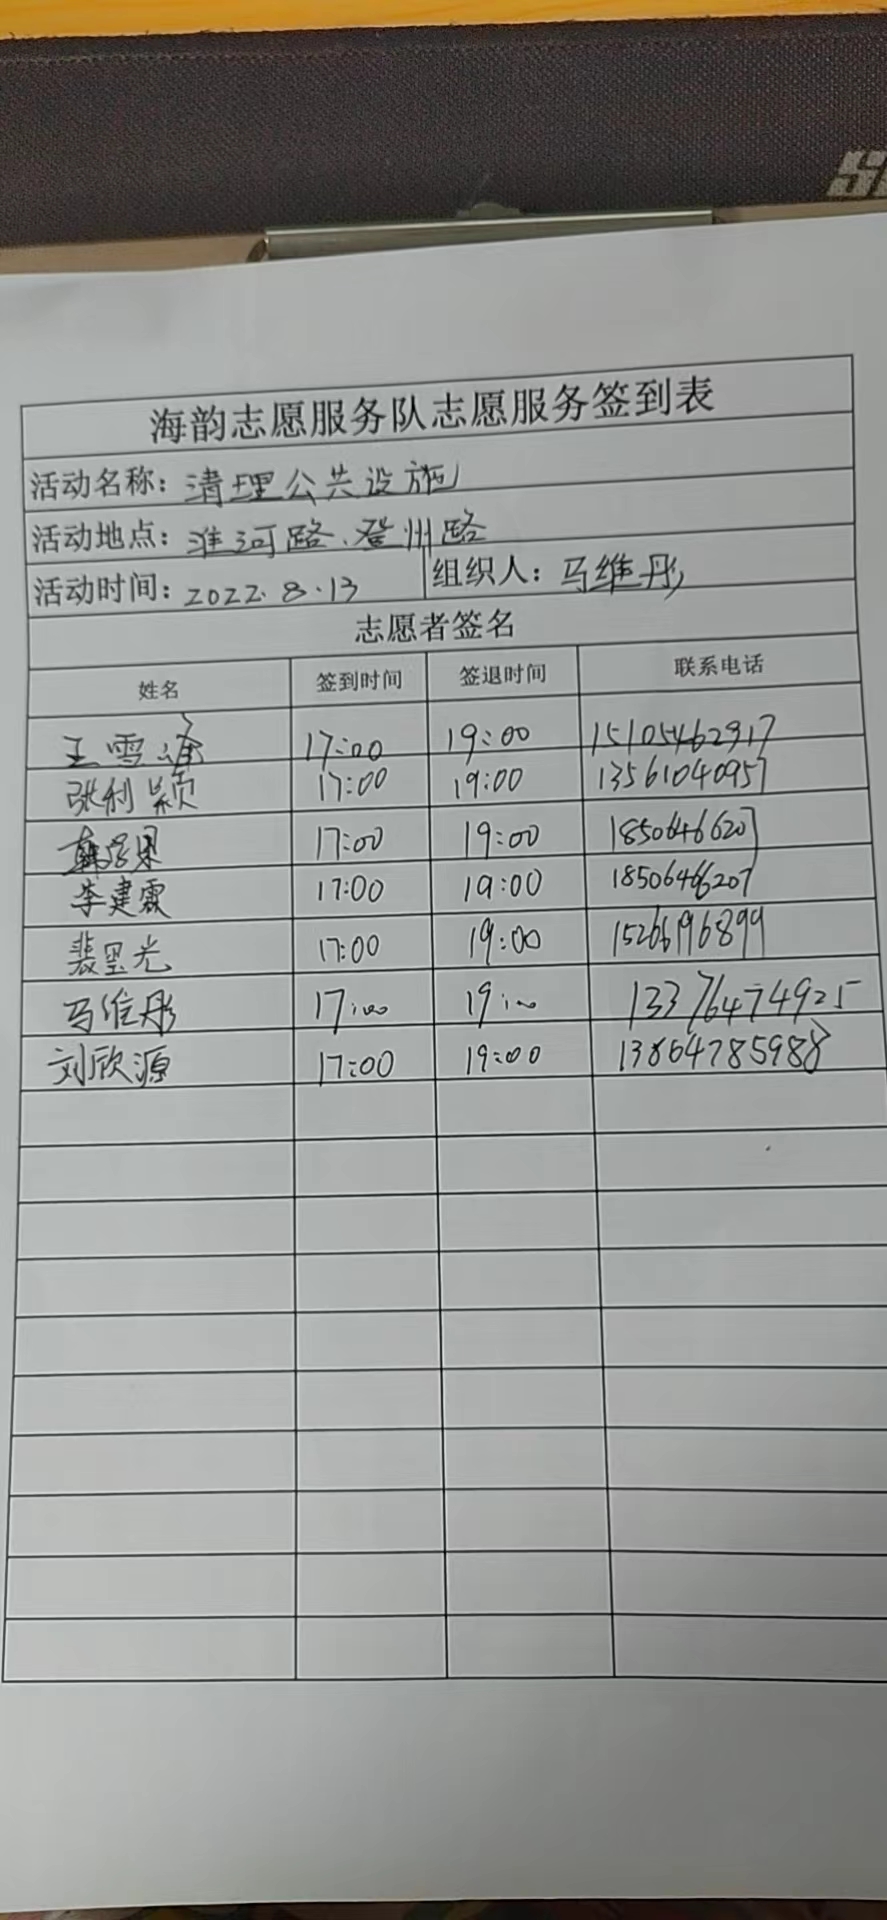 海韵志愿服务队志愿服务签到表
活动名称：清理公共设施
活动地点：淮河路、登州路
活动时间：2022.8.13 组织人：马维彤
志愿者签名
姓名 签到时间 签退时间 联系电话
王雪 17:00 19:00 15105462917
张利颖 17:00 19:00 13561040957
韩 17:00 19:00 18506466207
李建霖 17:00 19:00 18506466207
裴星光 17:00 19:00 15266196899
马维彤 17:00 19:00 13376474925
刘欣源 17:00 19:00 13864785988